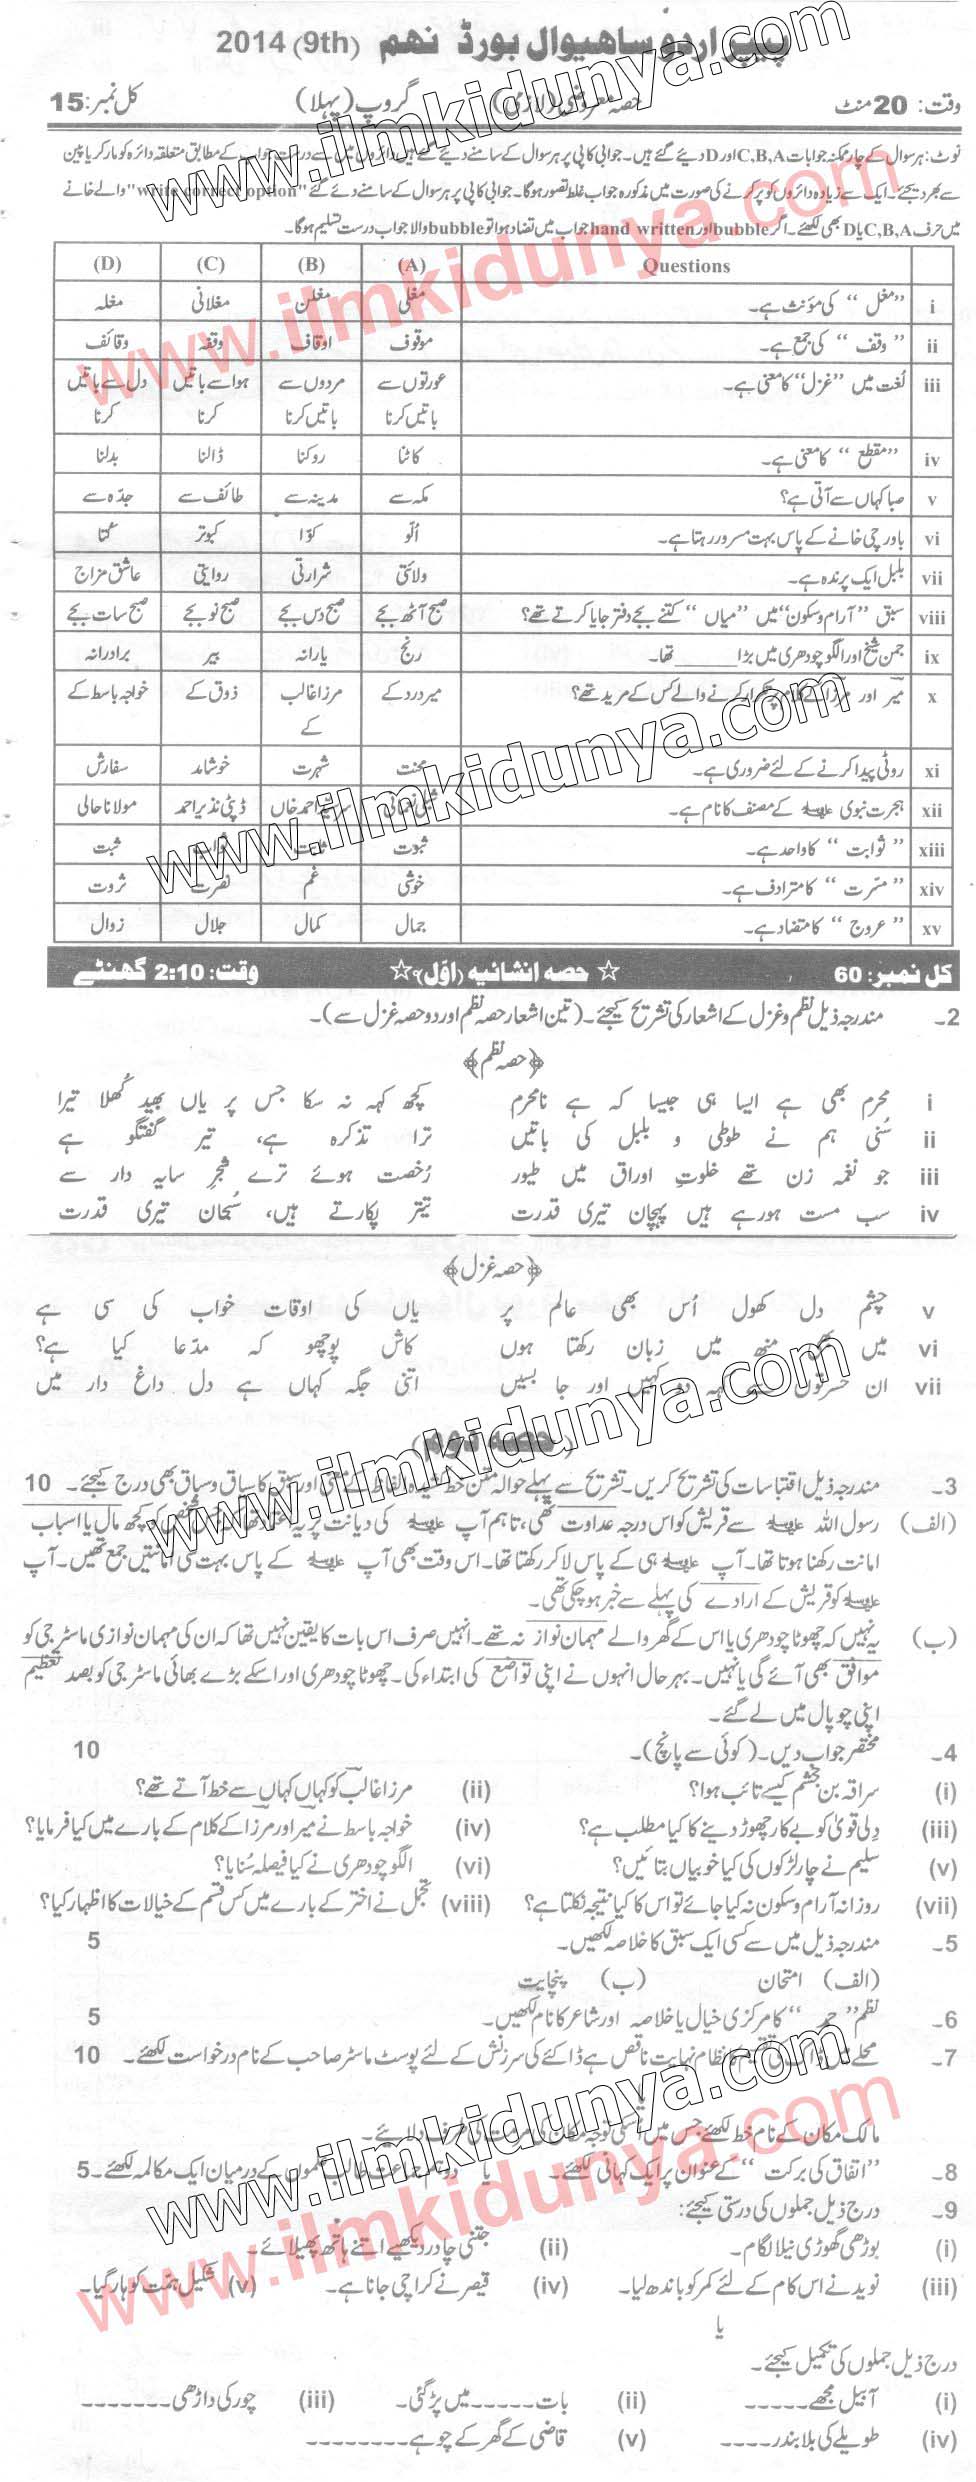 پیپر اردو ساھیوال بورڈ نھم 2014 (9th)
وقت: 20 منٹ حصہ معروضی (لازمی) گروپ (پہلا) کل نمبر: 15
نوٹ: ہر سوال کے چار ممکنہ جوابات C,B,A اور D دیئے گئے ہیں۔ جوابی کاپی پر ہر سوال کے سامنے دیئے گئے ہیں دائروں میں سے درست جواب کے مطابق متعلقہ دائرہ کو مارکر یا پین
سے بھر دیجئے۔ ایک سے زیادہ دائروں کو پر کرنے کی صورت میں مذکورہ جواب غلط تصور ہوگا۔ جوابی کاپی پر ہر سوال کے سامنے دئے گئے "write correct option" والے خانے
میں حرف C,B,A یا D بھی لکھئے۔ اگر bubble اور hand written جواب میں تضاد ہوا تو bubble والا جواب درست تسلیم ہوگا۔
Questions (A) (B) (C) (D)
i "مغل" کی مؤنث ہے۔ مغلی مغلن مغلانی مغلہ
ii "وقف" کی جمع ہے۔ موقوف اوقاف وقفہ وقائف
iii لُغت میں "غزل" کا معنی ہے۔ عورتوں سے باتیں کرنا مردوں سے باتیں کرنا ہوا سے باتیں کرنا دل سے باتیں کرنا
iv "مقطع" کا معنی ہے۔ کاٹنا روکنا ڈالنا بدلنا
v صبا کہاں سے آتی ہے؟ مکہ سے مدینہ سے طائف سے جدّہ سے
vi باورچی خانے کے پاس بہت مسرور رہتا ہے۔ اُلّو کوّا کبوتر کُتا
vii بلبل ایک پرندہ ہے۔ ولائتی شرارتی روایتی عاشق مزاج
viii سبق "آرام و سکون" میں "میاں" کتنے بجے دفتر جایا کرتے تھے؟ صبح آٹھ بجے صبح دس بجے صبح نو بجے صبح سات بجے
ix جمن شیخ اور الگو چودھری میں بڑا ______ تھا۔ رنج یارانہ بیر برادرانہ
x میر اور مرزا کے کلام پر تکرار کرنے والے کس کے مرید تھے؟ میر درد کے مرزا غالب کے ذوق کے خواجہ باسط کے
xi روٹی پیدا کرنے کے لئے ضروری ہے۔ محنت شہرت خوشامد سفارش
xii ہجرت نبوی ﷺ کے مصنف کا نام ہے۔ شبلی نعمانی سرسید احمد خاں ڈپٹی نذیر احمد مولانا حالی
xiii "ثوابت" کا واحد ہے۔ ثبوت ثابت ثواب ثبت
xiv "مسرت" کا مترادف ہے۔ خوشی غم نصرت ثروت
xv "عروج" کا متضاد ہے۔ جمال کمال جلال زوال
کل نمبر: 60 ☆ حصہ انشائیہ (اوّل) ☆ وقت: 2:10 گھنٹے
2۔ مندرجہ ذیل نظم و غزل کے اشعار کی تشریح کیجئے۔ (تین اشعار حصہ نظم اور دو حصہ غزل سے)۔
﴿حصہ نظم﴾
i محرم بھی ہے ایسا ہی جیسا کہ ہے نامحرم کچھ کہہ نہ سکا جس پر یاں بھید کُھلا تیرا
ii سُنی ہم نے طوطی و بلبل کی باتیں ترا تذکرہ ہے، تیر گفتگو ہے
iii جو نغمہ زن تھے خلوتِ اوراق میں طیور رُخصت ہوئے ترے شجرِ سایہ دار سے
iv سب مست ہو رہے ہیں پہچان تیری قدرت تیتر پکارتے ہیں، سُبحان تیری قدرت
﴿حصہ غزل﴾
v چشم دل کھول اُس بھی عالم پر یاں کی اوقات خواب کی سی ہے
vi میں بھی منھ میں زبان رکھتا ہوں کاش پوچھو کہ مدّعا کیا ہے؟
vii ان حسرتوں سے کہہ دو کہیں اور جا بسیں اتنی جگہ کہاں ہے دل داغ دار میں
(حصہ دوم)
3۔ مندرجہ ذیل اقتباسات کی تشریح کریں۔ تشریح سے پہلے حوالہ متن خط کشیدہ الفاظ کے معنی اور سبق کا سیاق و سباق بھی درج کیجئے۔ 10
(الف) رسول اللہ ﷺ سے قریش کو اس درجہ عداوت تھی، تاہم آپ ﷺ کی دیانت پر یہ اعتماد تھا کہ جس شخص کو کچھ مال یا اسباب
امانت رکھنا ہوتا تھا۔ آپ ﷺ ہی کے پاس لا کر رکھتا تھا۔ اس وقت بھی آپ ﷺ کے پاس بہت سی امانتیں جمع تھیں۔ آپ
ﷺ کو قریش کے ارادے کی پہلے سے خبر ہو چکی تھی۔
(ب) یہ نہیں کہ چھوٹا چودھری یا اس کے گھر والے مہمان نواز نہ تھے۔ انہیں صرف اس بات کا یقین نہیں تھا کہ ان کی مہمان نوازی ماسٹر جی کو
موافق بھی آئے گی یا نہیں۔ بہرحال انہوں نے اپنی تواضع کی ابتداء کی۔ چھوٹا چودھری اور اسکے بڑے بھائی ماسٹر جی کو بصد تعظیم
اپنی چوپال میں لے گئے۔
4۔ مختصر جواب دیں۔ (کوئی سے پانچ)۔ 10
(i) سراقہ بن جشم کیسے تائب ہوا؟ (ii) مرزا غالب کو کہاں کہاں سے خط آتے تھے؟
(iii) دِلی قویٰ کو بے کار چھوڑ دینے کا کیا مطلب ہے؟ (iv) خواجہ باسط نے میر اور مرزا کے کلام کے بارے میں کیا فرمایا؟
(v) سلیم نے چار لڑکوں کی کیا خوبیاں بتائیں؟ (vi) الگو چودھری نے کیا فیصلہ سُنایا؟
(vii) روزانہ آرام و سکون نہ کیا جائے تو اس کا کیا نتیجہ نکلتا ہے؟ (viii) تجمل نے اختر کے بارے میں کس قسم کے خیالات کا اظہار کیا؟
5۔ مندرجہ ذیل میں سے کسی ایک سبق کا خلاصہ لکھیں۔ 5
(الف) امتحان (ب) پنچایت
6۔ نظم "حمد" کا مرکزی خیال یا خلاصہ اور شاعر کا نام لکھیں۔ 5
7۔ محلے میں ڈاک کی تقسیم کا نظام نہایت ناقص ہے ڈاکئے کی سرزنش کے لئے پوسٹ ماسٹر صاحب کے نام درخواست لکھئے۔ 10
یا
مالک مکان کے نام خط لکھئے جس میں اُسکی توجہ مکان کی مرمت کی طرف دلائیے۔
8۔ "اتفاق کی برکت" کے عنوان پر ایک کہانی لکھئے۔ یا دو ہم جماعت طالب علموں کے درمیان ایک مکالمہ لکھئے۔ 5
9۔ درج ذیل جملوں کی درستی کیجئے:
(i) بوڑھی گھوڑی نیلا لگام۔ (ii) جتنی چادر دیکھیے اتنے ہاتھ پھیلائے۔
(iii) نوید نے اس کام کے لئے کمر کو باندھ لیا۔ (iv) قیصر نے کراچی جانا ہے۔ (v) شکیل ہمت کو ہار گیا۔
یا
درج ذیل جملوں کی تکمیل کیجئے۔
(i) آ بیل مجھے ----- (ii) بات ----- میں پڑ گئی۔ (iii) چور کی داڑھی -------
(iv) طویلے کی بلا بندر ---- (v) قاضی کے گھر کے چوہے --------
www.ilmkidunya.com
www.ilmkidunya.com
www.ilmkidunya.com
www.ilmkidunya.com
www.ilmkidunya.com
www.ilmkidunya.com